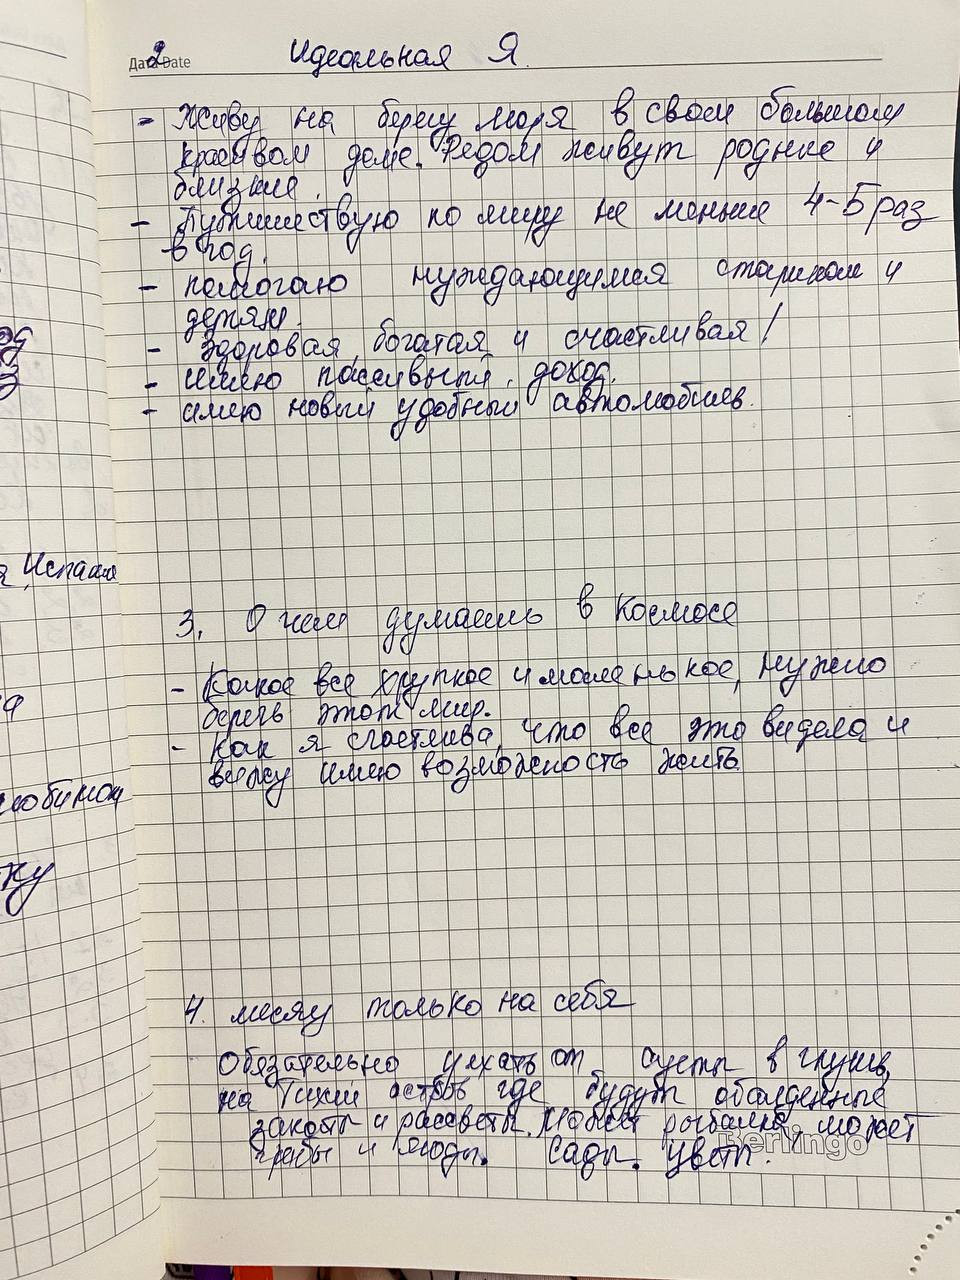 Дата Date
2 Идеальная Я.
- Живу на берегу моря в своем большом
красивом доме. Рядом живут родные и
близкие.
- Путешествую по миру не меньше 4-5 раз
в год.
- помогаю нуждающимся старикам и
детям.
- здоровая, богатая и счастливая!
- имею пассивный доход.
- имею новый удобный автомобиль.
Испания
3. О чем думаешь в космосе
- Какое все хрупкое и маленькое, нужно
беречь этот мир.
- Как я счастлива, что все это видела и
вижу имею возможность жить
ку
4. месяц только на себя
Обязательно уехать от суеты в глушь,
на Тихий остров где будут обалденные
закаты и рассветы. Может рыбалка, может
грибы и ягоды. Сады. Цветы.
Berlingo